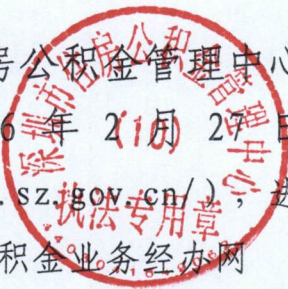 房公积金管理中心
6 年 2 月 27 日
.sz.gov.cn/），进
积金业务经办网
深圳市住房公积金管理中心
(10)
执法专用章